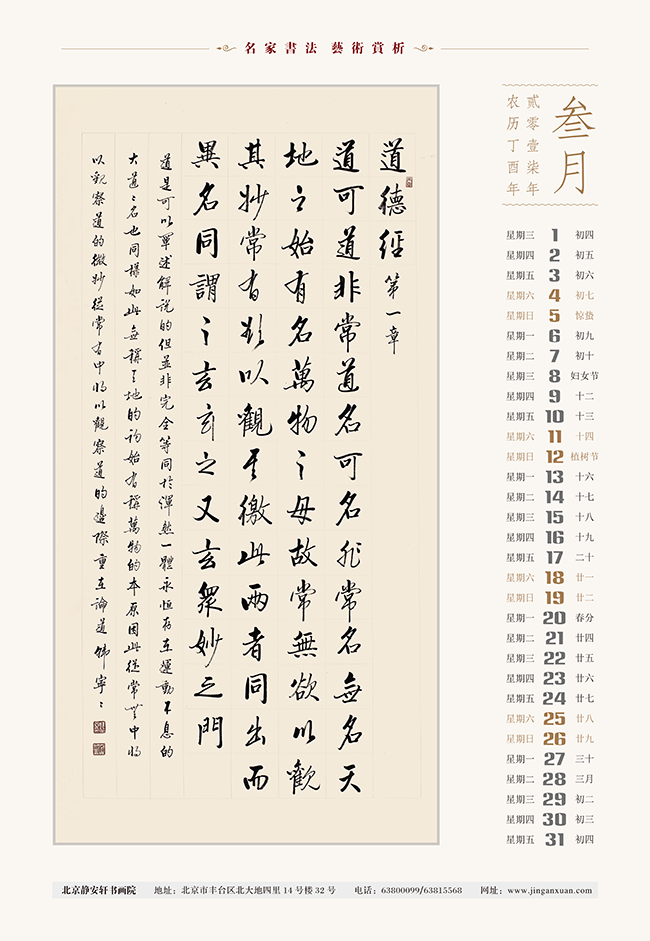 名家書法 藝術賞析
叁月
贰零壹柒年
农历丁酉年
道德經 第一章
道可道非常道名可名非常名無名天
地之始有名萬物之母故常無欲以觀
其妙常有欲以觀其徼此兩者同出而
異名同謂之玄玄之又玄衆妙之門
道是可以單述解說的但並非完全等同於渾然一體永恒存在運動不息的
大道道名也同樣如此無稱天地的初始有稱萬物的本原因此從常無中將
以觀察道的微妙從常有中將以觀察道的邊際重在論道韓寧寧
星期三 1 初四
星期四 2 初五
星期五 3 初六
星期六 4 初七
星期日 5 惊蛰
星期一 6 初九
星期二 7 初十
星期三 8 妇女节
星期四 9 十二
星期五 10 十三
星期六 11 十四
星期日 12 植树节
星期一 13 十六
星期二 14 十七
星期三 15 十八
星期四 16 十九
星期五 17 二十
星期六 18 廿一
星期日 19 廿二
星期一 20 春分
星期二 21 廿四
星期三 22 廿五
星期四 23 廿六
星期五 24 廿七
星期六 25 廿八
星期日 26 廿九
星期一 27 三十
星期二 28 三月
星期三 29 初二
星期四 30 初三
星期五 31 初四
北京静安轩书画院 地址：北京市丰台区北大地四里 14 号楼 32 号 电话：63800099/63815568 网址：www.jinganxuan.com